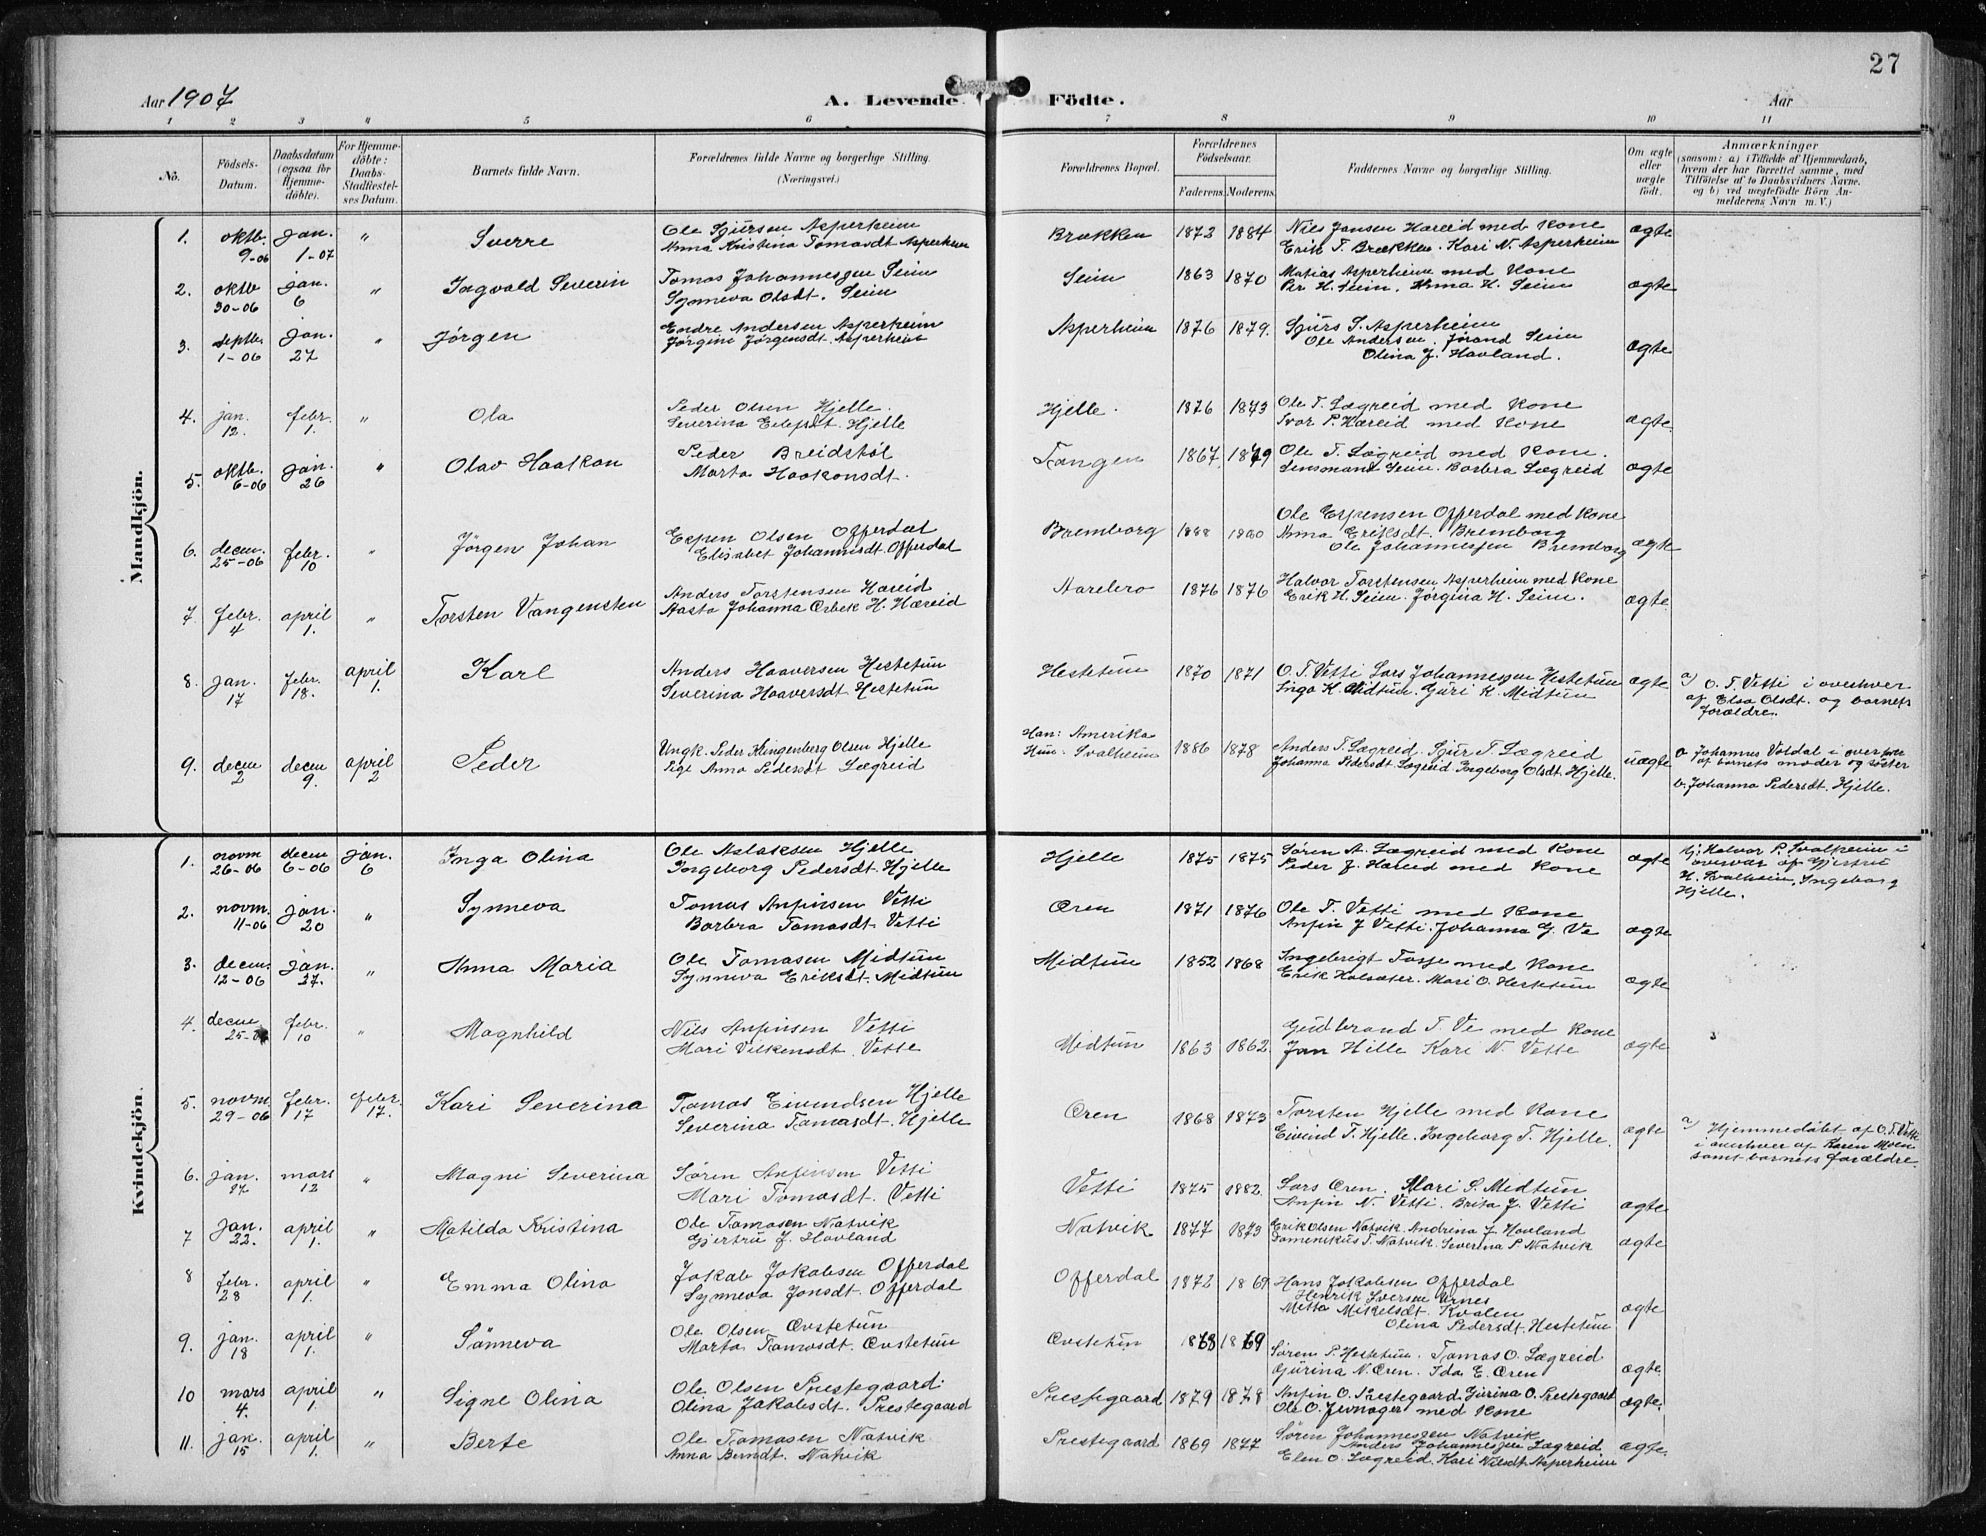 27
Aar 1907
A. Levende Födte.
Aar
1 2 3 4 5 6 7 8 9 10 11
No.
Födsels-Datum.
Daabsdatum (ogsaa for Hjemmedöbte).
For Hjemmedöbte: Daabs-Stadfæstelses Datum.
Barnets fulde Navn.
Forældrenes fulde Navne og borgerlige Stilling. (Næringsvei.)
Forældrenes Bopæl.
Forældrenes Födselsaar.
Faderens. Moderens.
Faddernes Navne og borgerlige Stilling.
Om ægte eller uægte født.
Anmærkninger
(saasom: a) i Tilfælde af Hjemmedaab, hvem der har forrettet samme, med Tilföielse af to Daabsvidners Navne, og b) ved uægtefödte Börn Anmelderens Navn m. V.)
Mandkjön.
1. oktb. 9-06 jan. 1-07 " Sverre Ole Sjursen Asperheim Anna Kristina Tomasdt Asperheim Brækken 1872 1884 Nils Jensen Hæreid med Kone Erik T. Brækken. Kari N. Asperheim ægte
2. oktb 30-06 jan. 6 " Ingvald Severin Tomas Johannessen Seim Synneva Olsdt. Seim Seim 1863 1870 Matias Asperheim med Kone Per H. Seim. Anna H. Seim ægte
3. septb. 1-06 jan. 27 " Jørgen Endre Andersen Asperheim Jørgine Jørgensdt. Asperheim Asperheim 1876 1879. Sjurs S. Asperheim Ole Andersen. Jorand Seim Olina J. Hovland. ægte
4. jan. 12. febr. 1. " Ola Peder Olsen Hjelle. Severina Eilefsdt. Hjelle Hjelle. 1876 1873 Ole T. Lægreid med Kone Ivar P. Hæreid med Kone ægte
5. oktb. 6-06 jan. 26 " Olav Haakon Peder Breidstøl Marta Haakonsdt. Tangen 1867 1879 Ole T. Lægreid med Kone. Lensmand Seim. Barbra Lægreid ægte
6. decem. 25-06 febr. 10 " Jørgen Johan Espen Olsen Offerdal Elisabet Johannesdt Offerdal Bremborg 1888 1880 Ole Espensen Offerdal med Kone Anna Eriksdt. Bremborg Ole Johannessen Bremborg ægte
7. febr. 4 april 1. " Torsten Vangensten Anders Torstensen Hæreid Aasta Johanna Ørbek H. Hæreid Aarebro 1876 1876 Halvor Torstensen Asperheim med Kone Erik H. Seim. Jørgina H. Seim. ægte
8. jan. 17 febr. 18. april 1. Karl Anders Haaversen Hestetun Severina Haaversdt Hestetun Hestetun 1870 1871 O. T. Vetti Lars Johannessen Hestetun Inga K. Midtun. Guri K. Midtun ægte a) O. T. Vetti i overhver af Elsa Olsdt. og barnets forældre.
9. decem 2 decem 9. april 2 Peder Ungk. Peder Klingenberg Olsen Hjelle Pige Anna Pedersdt Lægreid Han: Amerika Hun: Svalheim 1886 1878 Anders T. Lægreid. Sjur T. Lægreid Johanna Pedersdt Lægreid. Ingeborg Olsdt. Hjelle. uægte a. Johannes Voldal i overhver af barnets moder og søster b. Johanna Pedersdt. Hjelle.
Kvindekjön.
1. novm 26-06 decem 6-06 jan. 6 Inga Olina Ole Aslaksen Hjelle Ingeborg Pedersdt. Hjelle Hjelle 1875 1875 Søren A. Lægreid med Kone Peder J. Hæreid med Kone ægte Hj. Halvor P. Svalheim i overvær af Gjertru H. Svalheim, Ingeborg Hjelle.
2. novm. 11-06 jan. 20 " Synneva Tomas Anfinsen Vetti Barbra Tomasdt. Vetti Øren 1871 1876 Ole T. Vetti med Kone Anfin J Vetti. Johanna G. Ve ægte
3. decem. 12-06 jan. 27. " Anna Maria Ole Tomasen Midtun Synneva Eriksdt. Midtun Midtun 1852 1868 Ingebrigt Fosse med Kone Erik Holsæter. Mari O. Hestetun ægte
4. decem 25-06 febr. 10 " Magnhild Nils Anfinsen Vetti Mari Vilkensdt. Vette Midtun 1863 1862. Gudbrand T. Ve med Kone Jan Hille Kari N. Vette ægte
5. novm. 29-06 febr. 17 febr. 17. Kari Severina Tomas Eivendsen Hjelle Severina Tomasdt. Hjelle Øren 1868 1873 Torsten Hjelle med Kone Eivind T. Hjelle. Ingeborg T. Hjelle. ægte a) Hjemmedøbt af O. T. Vetti i overhver af Karen Moen samt barnets forældre.
6. jan. 27 mars 12 " Magni Severina Søren Anfinsen Vetti Mari Tomasdt. Vetti Vetti 1875 1882. Lars Øren. Mari S. Midtun Anfin N. Vetti. Brita J. Vetti ægte
7 jan. 22. april 1. " Matilda Kristina Ole Tomasen Natvik Gjertru J. Hovland Natvik 1877 1873 Erik Olsen Natvik. Andrina J. Hovland Domenikus T. Natvik. Severina P. Natvik ægte
8 febr. 28 april 1. " Emma Olina Jakob Jakobsen Offerdal Synneva Jonsdt. Offerdal Offerdal 1872 1869 Hans Jakobsen Offerdal Henrik Iversen Urnes Metta Mikelsdt. Kvalen Olina Pedersdt. Hestetun ægte
9. jan. 18 april 1. " Sønneva Ole Olsen Øvstetun Marta Tomasdt. Øvstetun Øvstetun 1868 1869 Søren P. Hestetun. Tomas O. Lægreid Gurina N. Øren. Ida E. Øren ægte
10 mars 4. april 1. " Signe Olina Ole Olsen Prestegaard. Olina Jakobsdt. Prestegaard Prestegaard 1879 1878 Anfin O. Prestegaard Gurina O. Prestegaard Ole O. Jevnager med Kone ægte.
11. jan. 15 april 1. " Berte Ole Tomasen Natvik. Anna Berndt. Natvik Prestegaard 1869 1877 Søren Johannessen Natvik Anders Johannessen Lægreid Elen O. Lægreid. Kari Nilsdt Asperheim ægte.